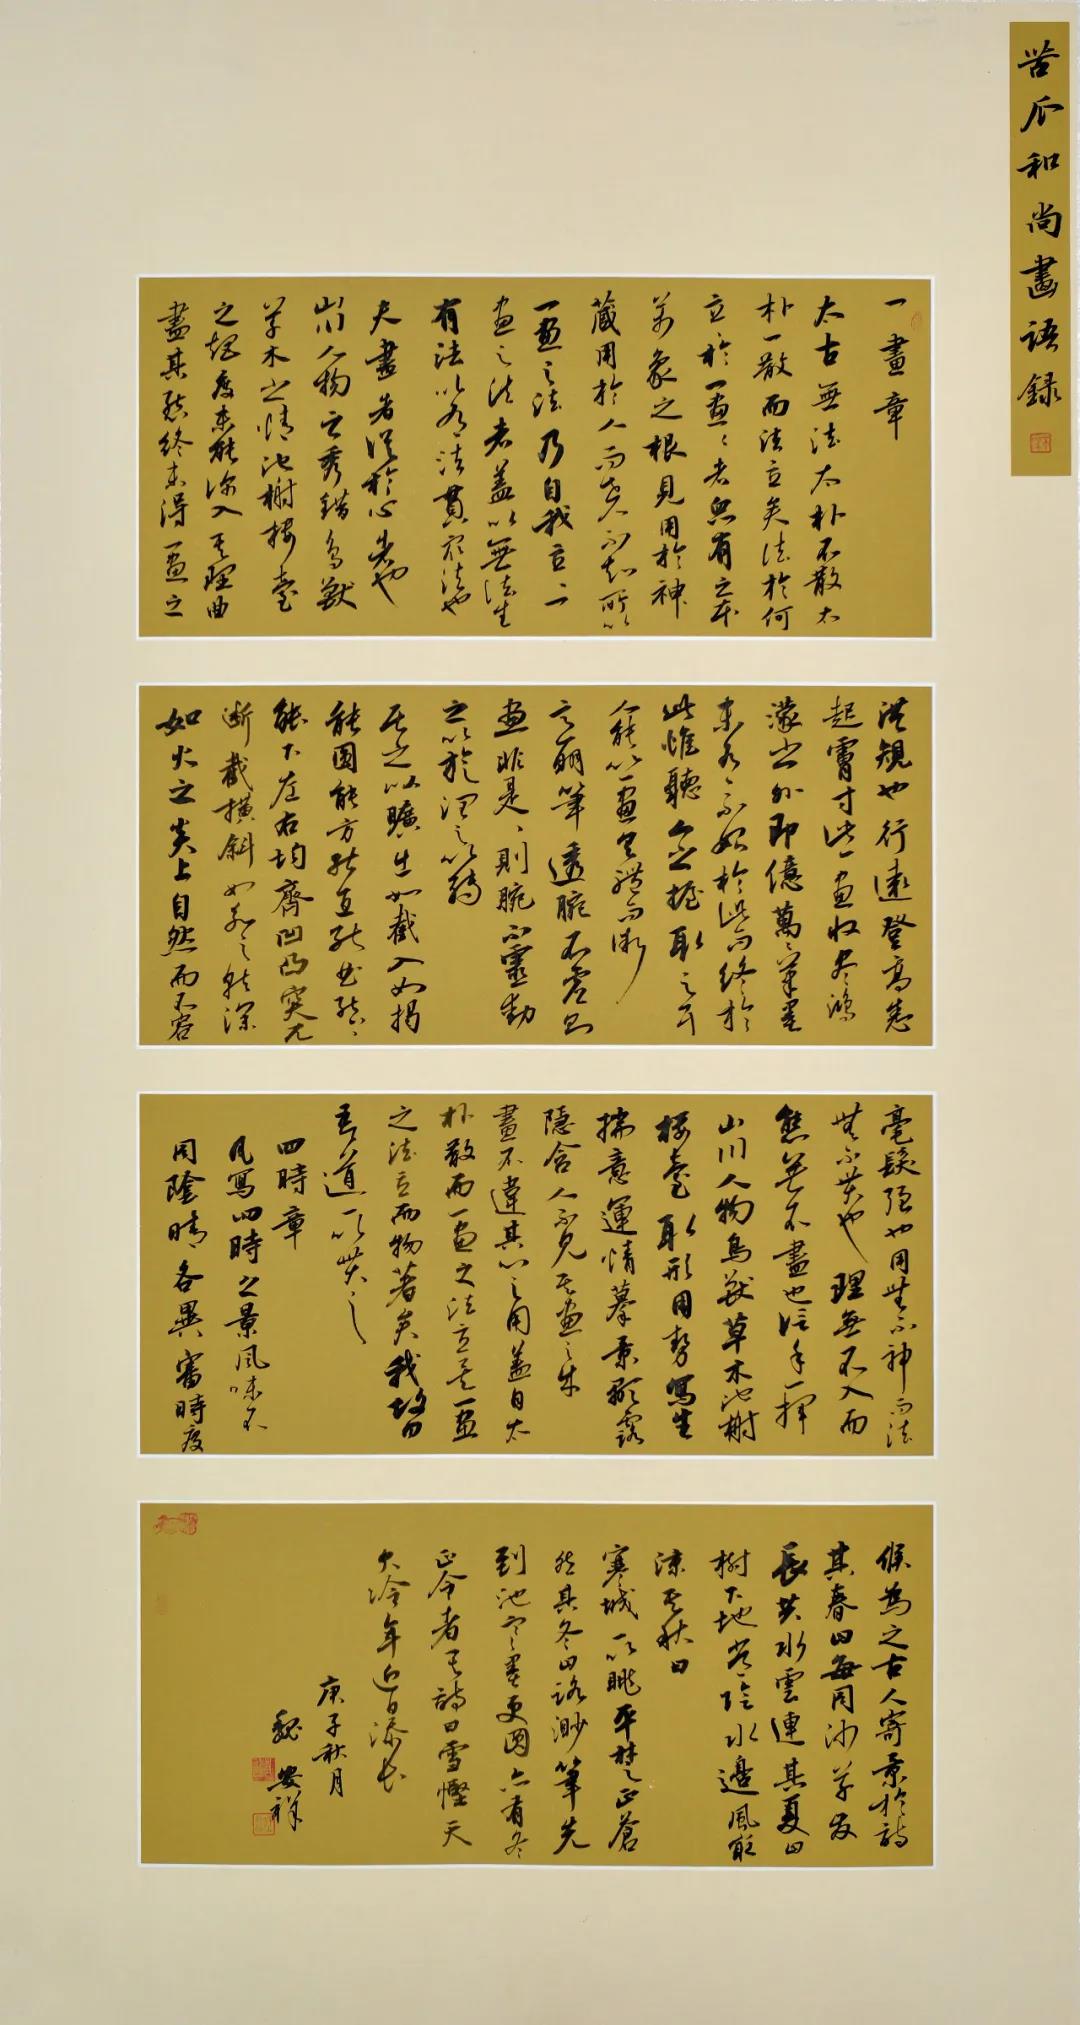 苦瓜和尚畫語録
一畫章
太古無法太朴不散太
朴一散而法立矣法於何
立於一畫一畫者眾有之本
萬象之根見用於神
藏用於人而世人不知所以
一畫之法乃自我立一
畫之法者蓋以無法生
有法以有法貫眾法也
夫畫者從於心者也
山川人物之秀錯鳥獸
草木之情池榭樓臺
之矩度未能深入其理曲
盡其態終未得一畫之
洪規也行遠登高悉
起膚寸此一畫收盡鴻
濛之外即億萬萬筆墨
未有不始於此而終於
此惟聽人之握取之耳
人能以一畫具體而微
意明筆透腕不虛則
畫非是則腕不靈動
之以旋潤之以轉
居之以曠出如截入如揭
能圓能方能直能曲能上
能下左右均齊凹凸突兀
斷截橫斜如水之就深
如火之炎上自然而不容
毫髮强也用無不神而法
無不貫也理無不入而
態無不盡也信手一揮
山川人物鳥獸草木池榭
樓臺取形用勢寫生
揣意運情摹景顯露
隱含人不見其畫之成
畫不違其心之用蓋自太
朴散而一畫之法立矣一畫
之法立而萬物著矣我故曰
吾道一以貫之
四時章
凡寫四時之景風味不
同陰晴各異審時度
候為之古人寄景於詩
其春曰每同沙草發
長共水雲連其夏曰
樹下地常陰水邊風最
涼其秋曰
寒城一以眺平楚正蒼
然其冬曰路渺筆先
到池寒墨更圓亦有冬
正令者其詩曰雪慳天
欠冷年近日添長
庚子秋月
魏安祥